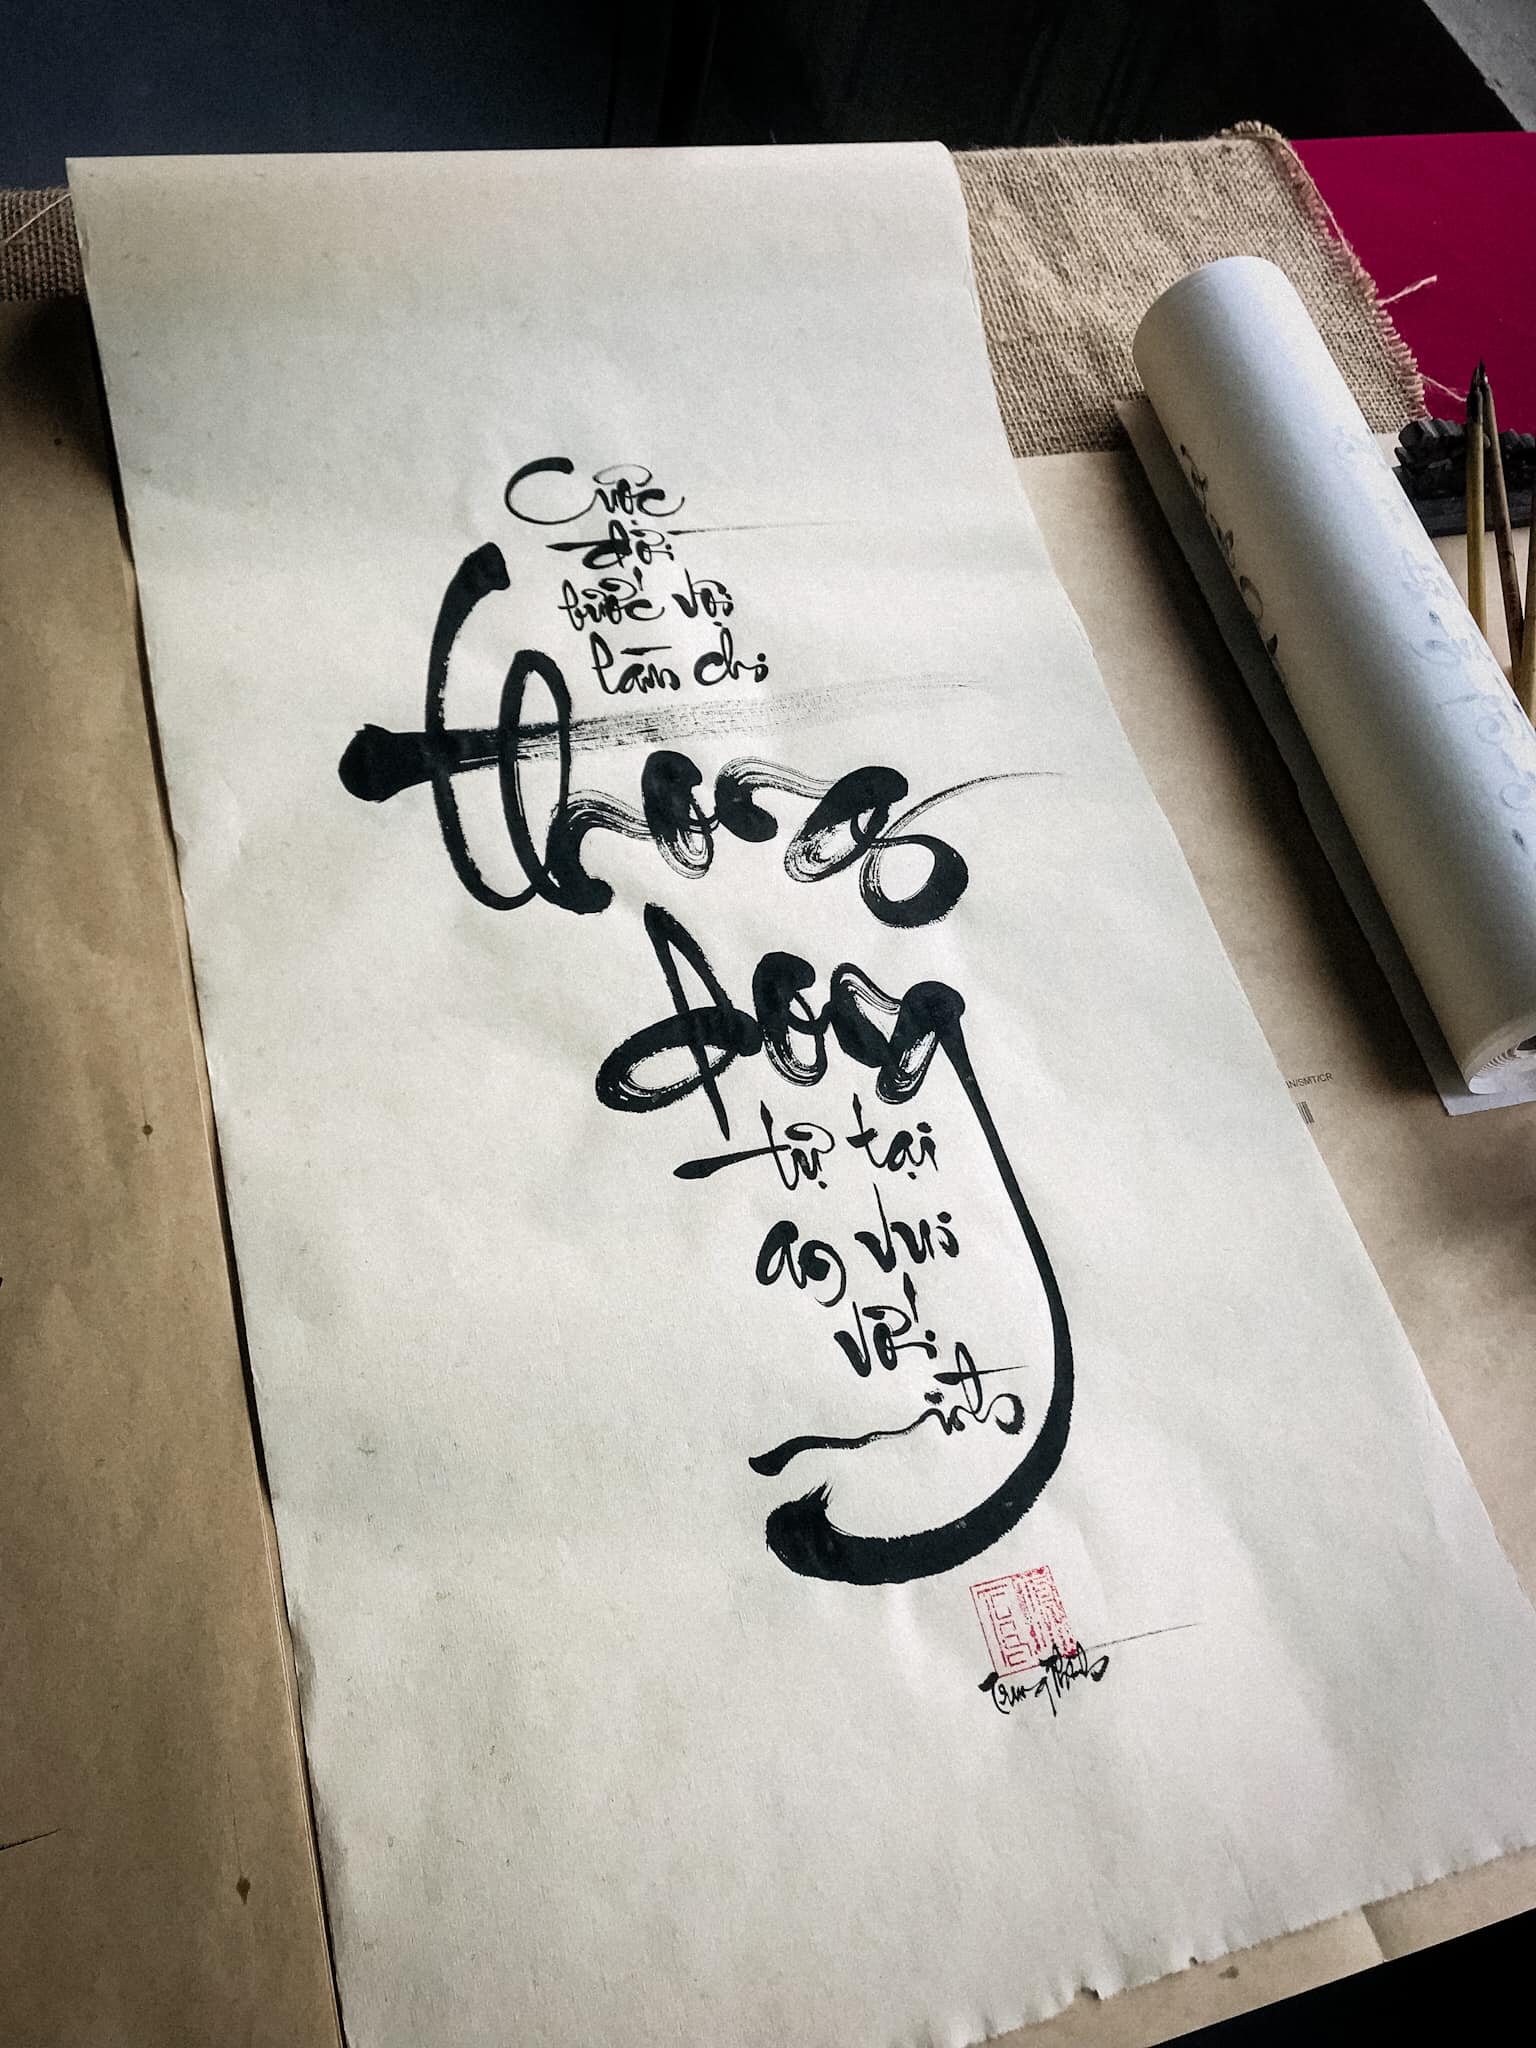 Cuộc
đời
bước vội
làm chi
thong
dong
tự tại
an vui
với
mình
Trung Thành
IN/SMT/CR